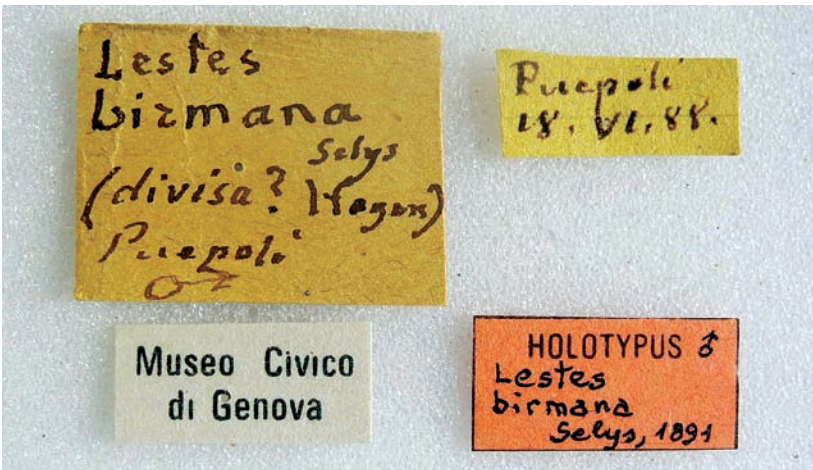 Lestes
birmana
Selys
(divisa? Hagen)
Puepoli
♂
Puepoli
18. VI. 88.
Museo Civico
di Genova
HOLOTYPUS ♂
Lestes
birmana
Selys, 1891